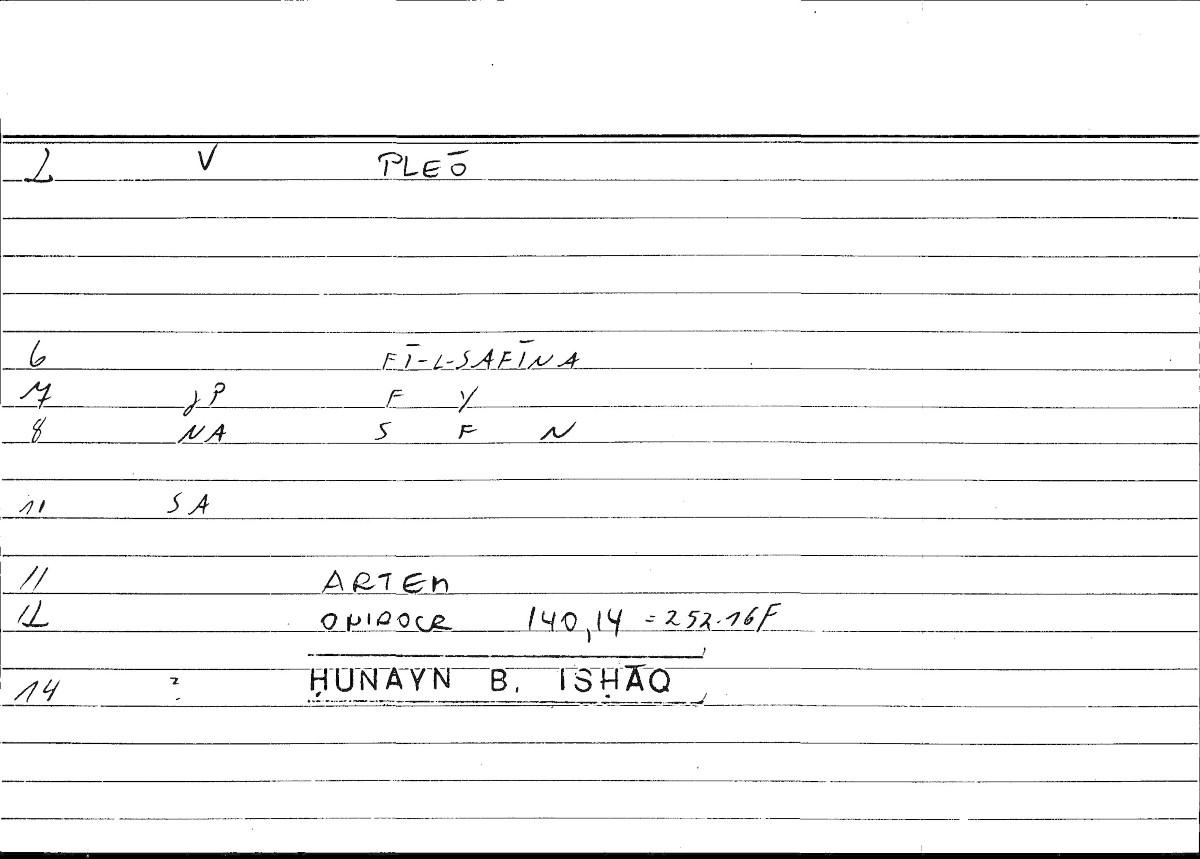 2 V PLEŌ
6 FĪ-L-SAFĪNA
7 γP F Y
8 NA S F N
11 SA
11 ARTEM
12 ONIROCR 140,14 = 252.16F
14 ? ḤUNAYN B. ISḤĀQ